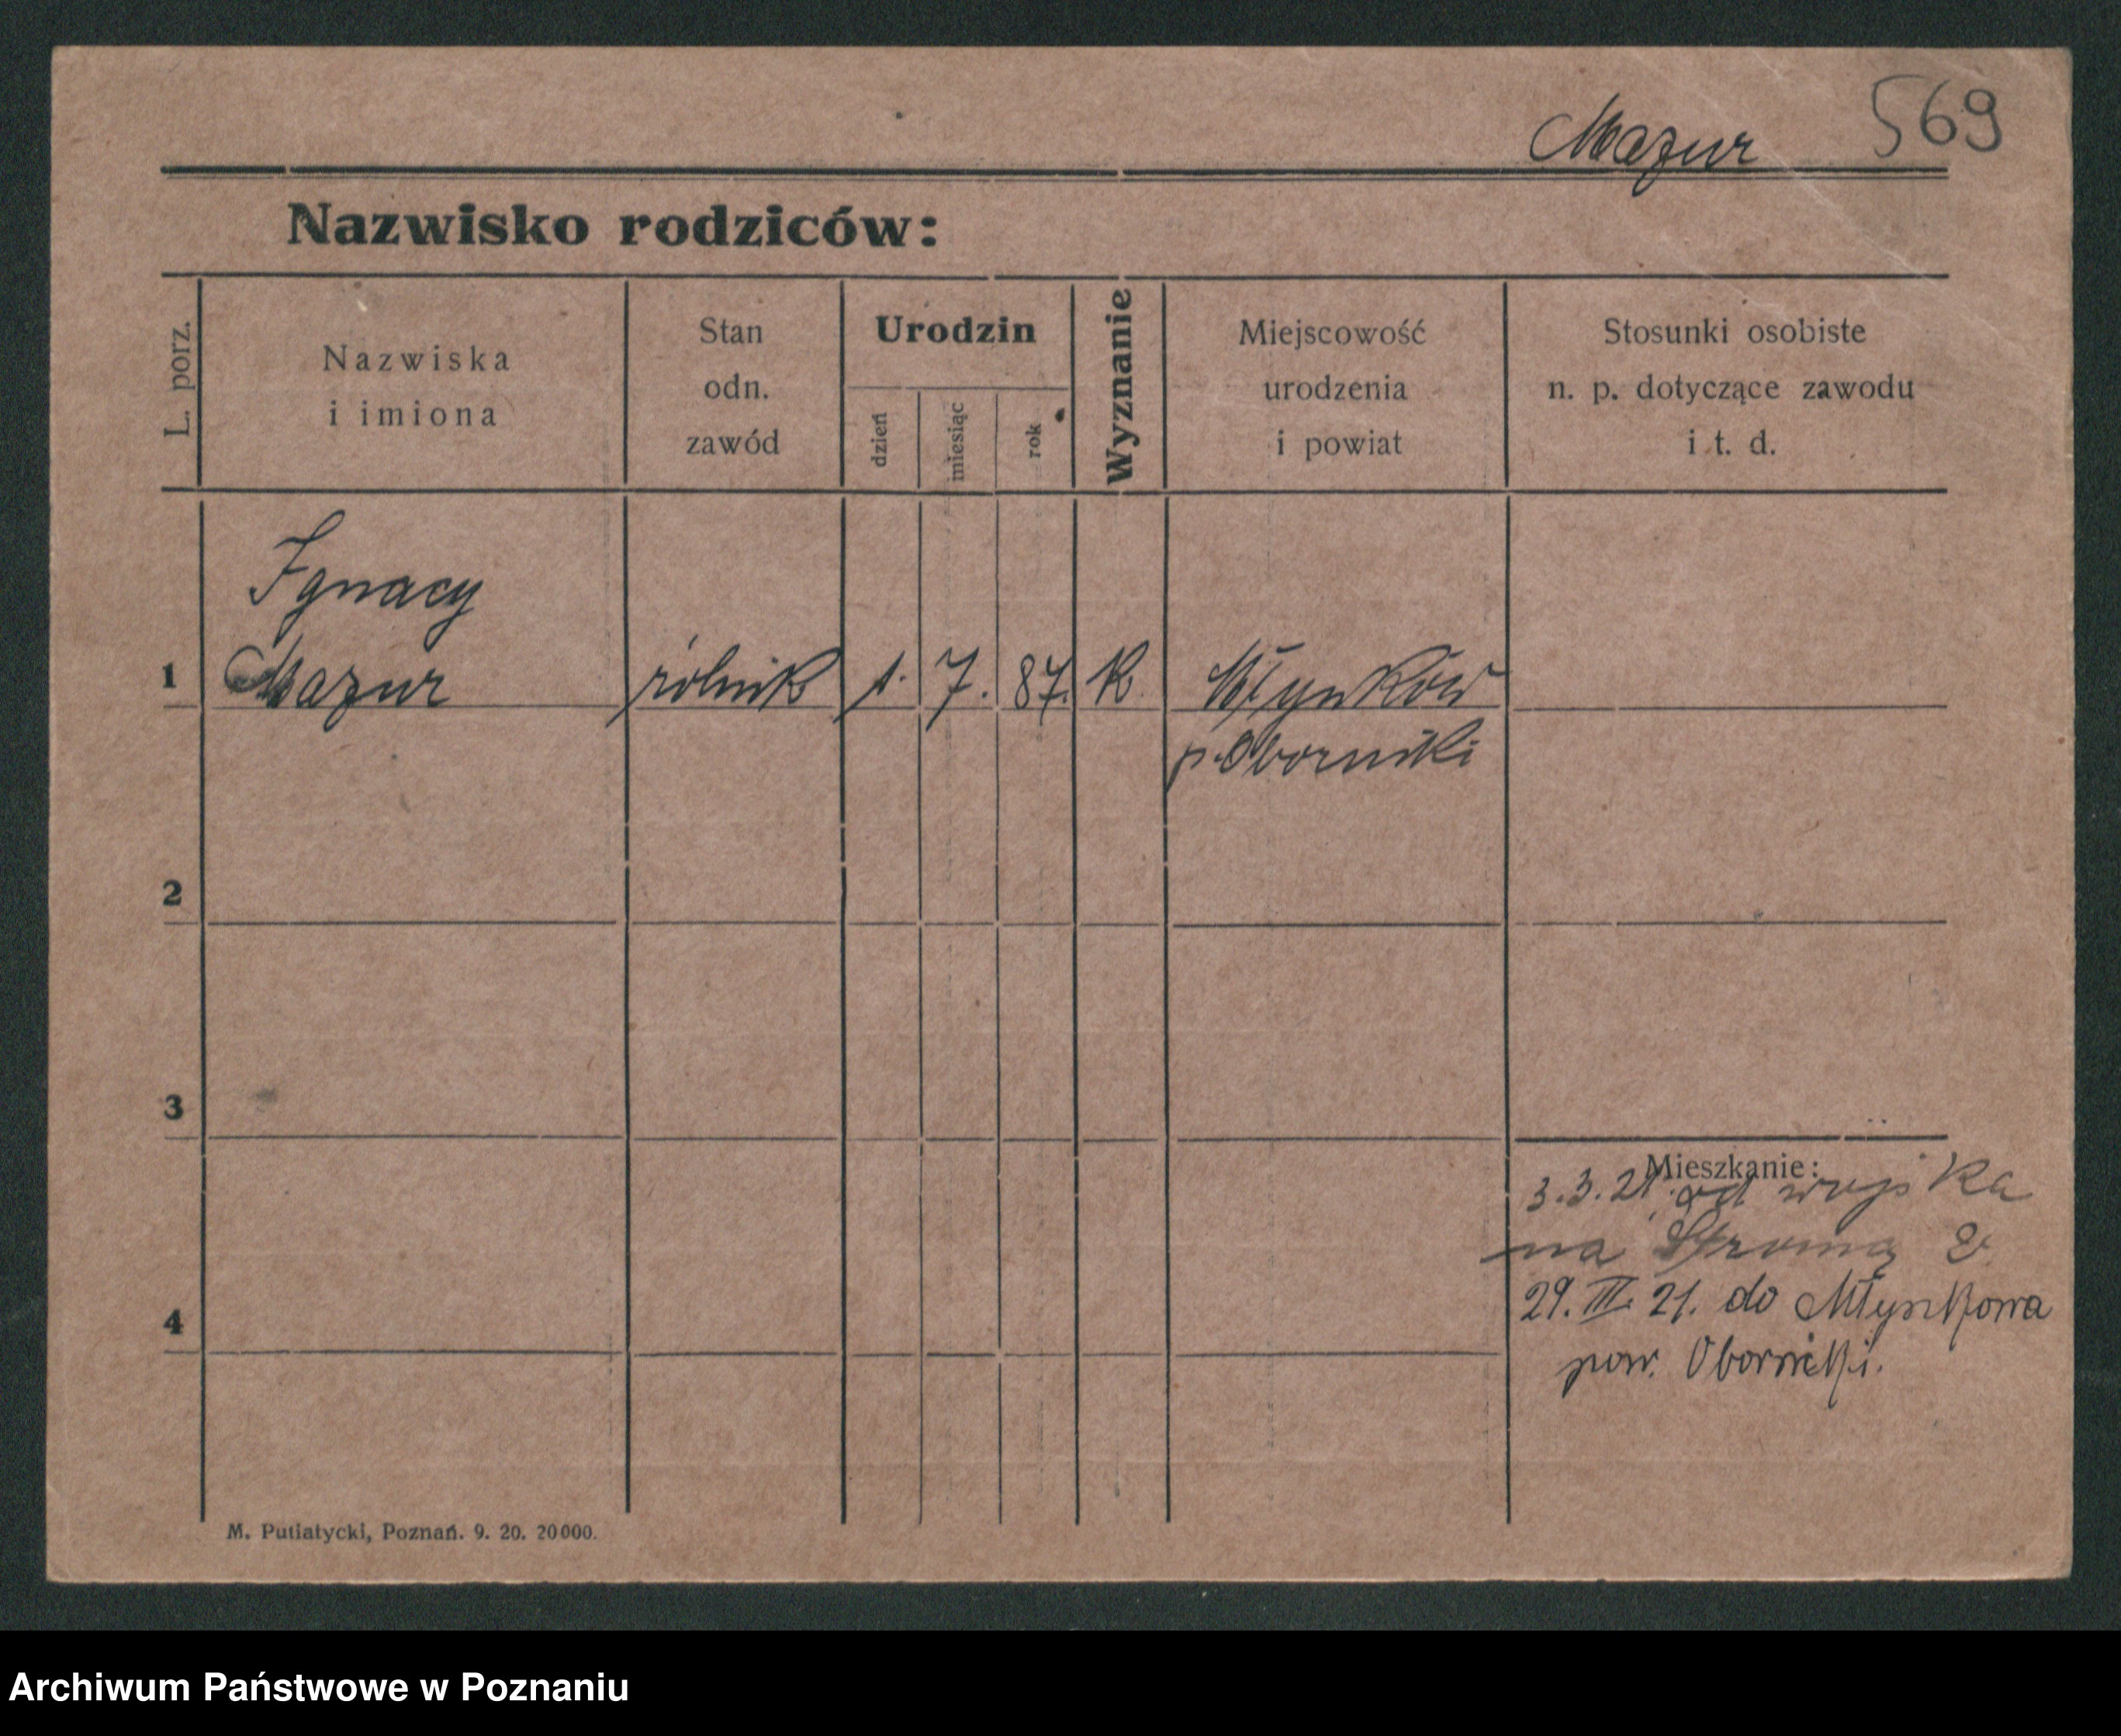 Mazur 569
Nazwisko rodziców:
L. porz.
Nazwiska
i imiona
Stan
odn.
zawód
Urodzin
dzień
miesiąc
rok
Wyznanie
Miejscowość
urodzenia
i powiat
Stosunki osobiste
n. p. dotyczące zawodu
i t. d.
Ignacy
1 Mazur rolnik 1. 7. 87. k Młynków
p. Oborniki
2
3
Mieszkanie:
3.3.21. od wojska
na Stromą
29. III. 21. do Młynkowa
4
pow. Oborniki.
M. Putiatycki, Poznań. 9. 20. 20000.
Archiwum Państwowe w Poznaniu